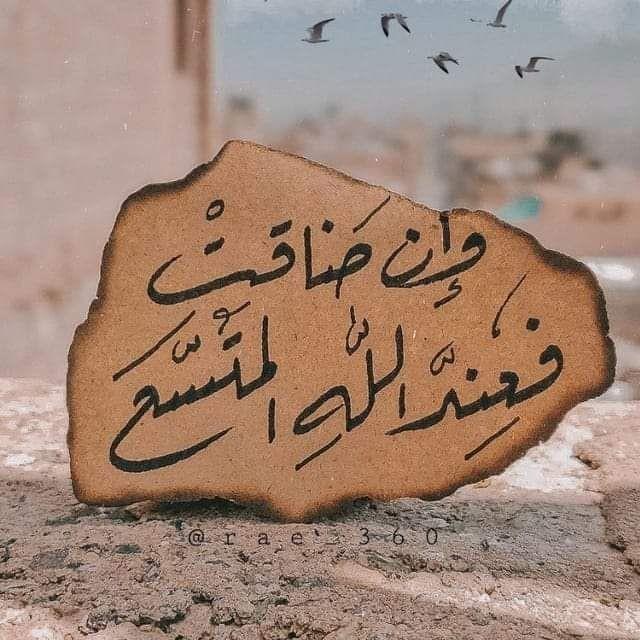 وَإن ضَاقتْ
فَعِندَّ اللَّهِ المتَّسَعُ
@rae_360